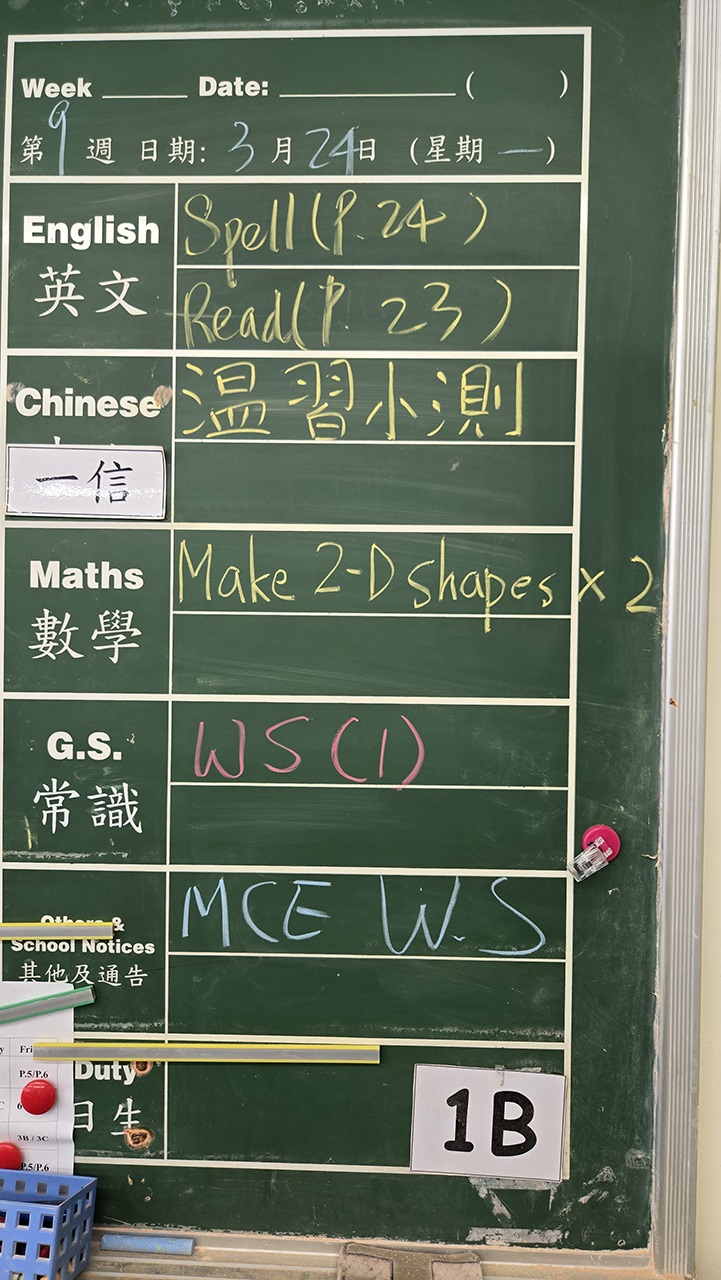 Week ______ Date: ______________ ( )
第9週 日期: 3月24日 (星期一)
English
英文
Spell(P.24)
Read(P.23)
Chinese
一信
温習小測
Maths
數學
Make 2-D shapes x 2
G.S.
常識
WS(1)
Others &
School Notices
其他及通告
MCE W.S
Fri
P.5/P.6
6
3B / 3C
P.5/P.6
Duty
日生
1B